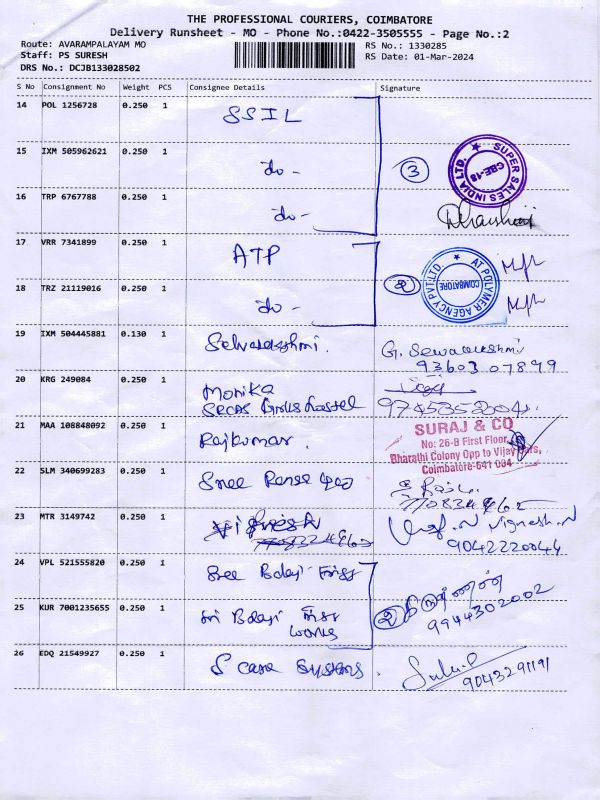 THE PROFESSIONAL COURIERS, COIMBATORE
Delivery Runsheet - MO - Phone No.:0422-3505555 - Page No.:2
Route: AVARAMPALAYAM MO
RS No.: 1330285
Staff: PS SURESH
RS Date: 01-Mar-2024
DRS No.: DCJB133028502
S No Consignment No Weight PCS Consignee Details Signature
14 POL 1256728 0.250 1 SSIL
15 IXM 505962621 0.250 1 do -
3
SUPER SALES INDIA LTD. CBE-18
16 TRP 6767788 0.250 1 do -
17 VRR 7341899 0.250 1 ATP
18 TRZ 21119016 0.250 1 do -
2
AT POLYMER AGENCY PVT.LTD
COIMBATORE
19 IXM 504445881 0.130 1
93603 07899
20 KRG 249084 0.250 1 Monika
21 MAA 108848092 0.250 1 Rajkumar
SURAJ & CO
No: 26-B First Floor,
Bharathi Colony Opp to Vijay
Coimbatore-641 004
22 SLM 340699283 0.250 1 Sree
23 MTR 3149742 0.250 1 Vignesh
Vignesh.N
9042220044
24 VPL 521555820 0.250 1 Sree Balaji
25 KUR 7001235655 0.250 1 Sri Balaji
works
2
9944302002
26 EDQ 21549927 0.250 1 S care Systems
9043291191